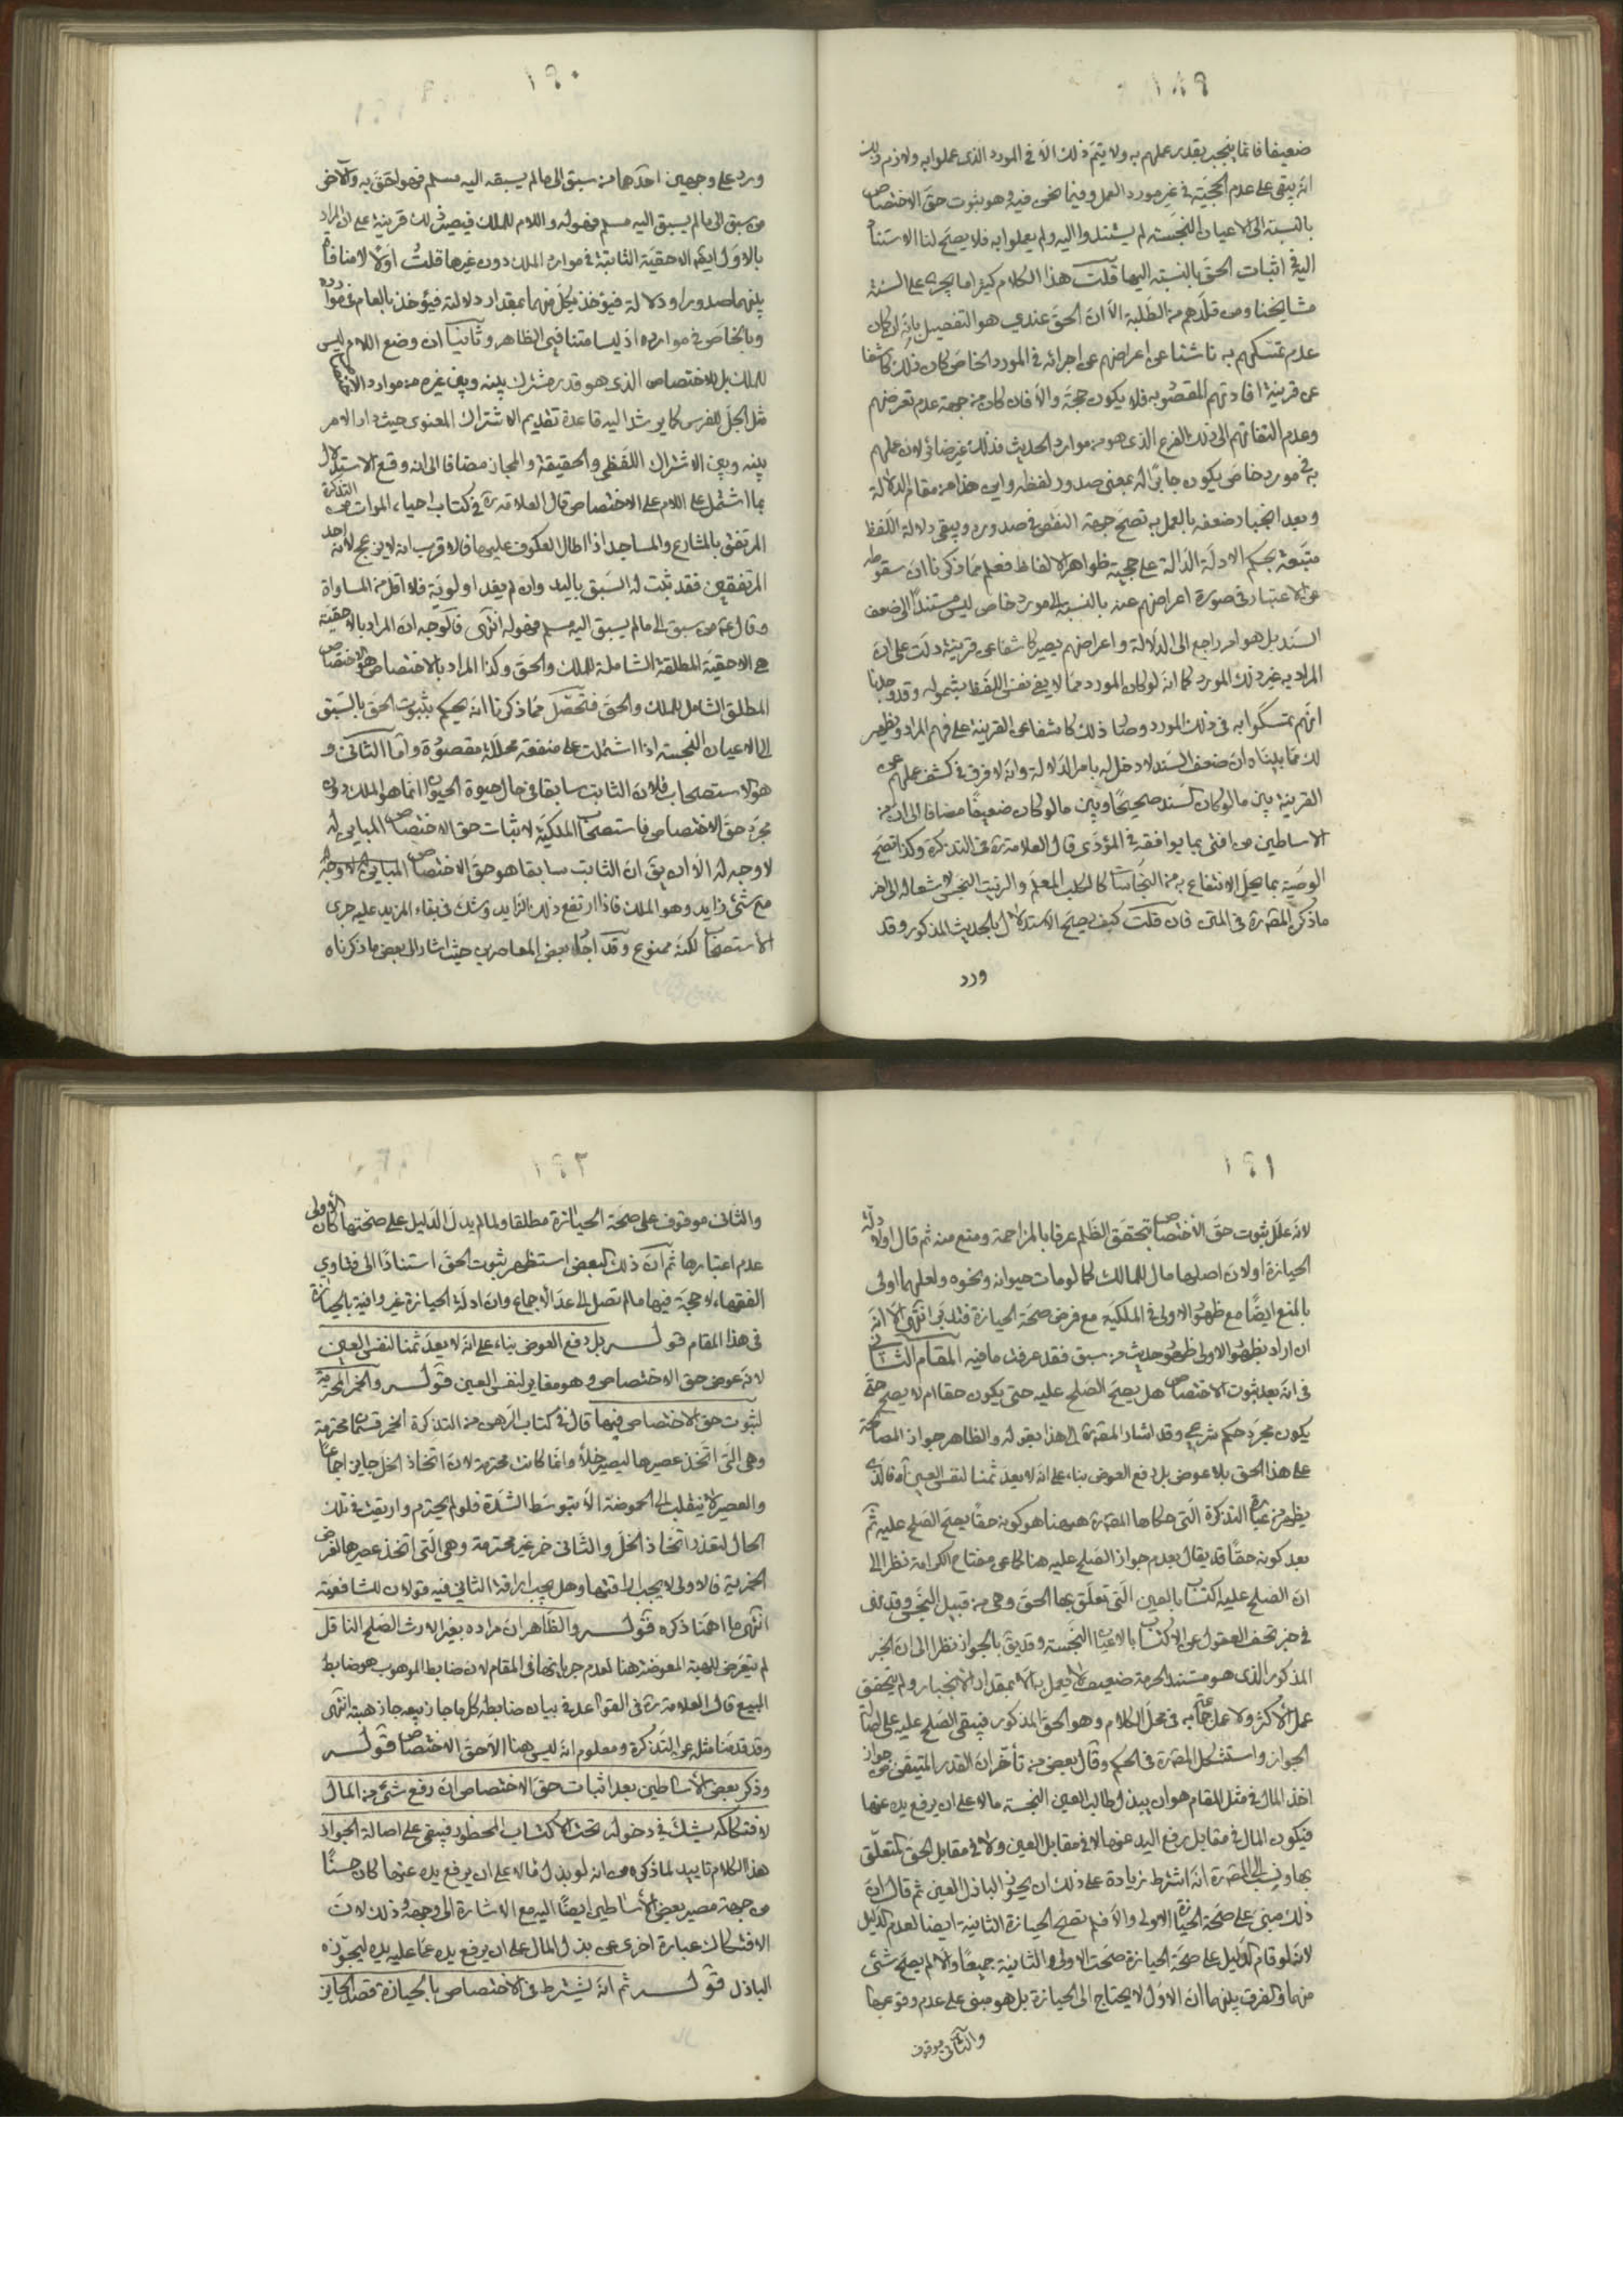 ١٨٩
ضعيفا فانما ينجبر بقدر عملهم به ولا يتم ذلك الا فى المورد الذى عملوا به ولازم ذلك
انه يبقى على عدم الحجية فى غير مورد العمل وفيما نحن فيه وهو ثبوت حق الاختصاص
بالنسبة الى الاعيان النجسة لم يستندوا اليه ولم يعملوا به فلا يصح لنا الاستناد
اليه فى اثبات الحق بالنسبة اليها قلت هذا الكلام كثيرا ما يجرى على السنة
مشايخنا ومن قلدهم من الطلبة الا ان الحق عندى هو التفصيل بانه ان كان
عدم تمسكهم به ناشئا عن اعراضهم عن اجرائه فى المورد الخاص كان ذلك كاشفا
عن قرينة افادتهم المقصود به فلا يكون حجة والا فان كان من جهة عدم تعرضهم
وعدم التفاتهم الى ذلك الفرع الذى هو من موارد الحديث فذلك غير ضائر لان عملهم
به فى مورد خاص يكون جابرا له بمعنى صدور لفظه واين هذا من مقام الدلالة
وبعد انجبار ضعفه بالعمل به تصح جهة النقص فى صدوره ويبقى دلالة اللفظ
متبعة بحكم الادلة الدالة على حجية ظواهر الالفاظ فعلم مما ذكرنا ان سقوطه
عن الاعتبار فى صورة اعراضهم عنه بالنسبة الى مورد خاص ليس مستندا الى ضعف
السند بل هو امر راجع الى الدلالة واعراضهم يصير كاشفا عن قرينة دلت على ان
المراد به غير ذلك المورد كما انه لو كان المورد مما لا يفى نفس اللفظ بشموله وقد وجدنا
انهم تمسكوا به فى ذلك المورد وصار ذلك كاشفا عن القرينة على فهم المراد ويظهر
لك مما بيناه ان ضعف السند لا دخل له بامر الدلالة وانه لا فرق فى كشف عملهم عن
القرينة بين ما لو كان السند صحيحا وبين ما لو كان ضعيفا مضافا الى ان من
الاساطين من افتى بما يوافقه فى المؤدى قال العلامة ره فى التذكرة وكذا تصح
الوصية بما يحل الانتفاع به من النجاسات كالكلب المعلم والزيت النجس لاشعاله الى اخر
ما ذكره المصنف ره فى المتن فان قلت كيف يصح الاستدلال بالحديث المذكور وقد
ورد
١٩٠
ورد على وجهين احدهما من سبق الى ما لم يسبقه اليه مسلم فهو احق به والاخر
من سبق الى ما لم يسبق اليه مسلم فهو له واللام للملك فيصير ذلك قرينة على ان المراد
بالاول ايضا الاحقية الثابتة فى موارد الملك دون غيرها قلت اولا لا منافاة
بينهما صدورا ودلالة فيؤخذ بكل منهما بمقدار دلالته فيؤخذ بالعام فى موارده
وبالخاص فى موارده اذ ليسا متنافيى الظاهر وثانيا ان وضع اللام ليس
للملك بل للاختصاص الذى هو قدر مشترك بينه وبين غيره من موارد الاستعمال
مثل الجل للفرس كما يرشد اليه قاعدة تقديم الاشتراك المعنوى حيث دار الامر
بينه وبين الاشتراك اللفظى والحقيقة والمجاز مضافا الى انه وقع الاستدلال
بما اشتمل على اللام على الاختصاص قال العلامة ره فى كتاب احياء الموات من التذكرة
المرتفق بالمشارع والمساجد اذا طال العكوف عليها فالاقرب انه لا يزعج لانه احد
المرتفقين فقد ثبت له السبق باليد وان لم يفد اولوية فلا اقل من المساواة
وقال ع من سبق الى ما لم يسبق اليه مسلم فهو له انتهى فالوجه ان المراد بالاحقية
هى الاحقية المطلقة الشاملة للملك والحق وكذا المراد بالاختصاص هو الاختصاص
المطلق الشامل للملك والحق فتحصل مما ذكرنا انه يحكم بثبوت الحق بالسبق
الى الاعيان النجسة اذا اشتملت على منفعة محللة مقصودة واما الثانى و
هو الاستصحاب فلان الثابت سابقا فى حال حيوة الحيوان انما هو الملك دون
مجرد حق الاختصاص فاستصحاب الملكية لاثبات حق الاختصاص المباين له
لا وجه له الا ان يق ان الثابت سابقا هو حق الاختصاص المباين له لا وجه له
مع شئ زايد وهو الملك فاذا ارتفع ذلك الزايد وشك فى بقاء المزيد عليه جرى
الاستصحاب لكنه ممنوع وقد اجاد بعض المعاصرين حيث اشار الى بعض ما ذكرناه
١٩١
لانه علل ثبوت حق الاختصاص بتحقق الظلم عرفا بالمزاحمة ومنع منه ثم قال او ادلة
الحيازة او لان اصلها مال للمالك كما لو مات حيوانه ونحوه ولعلهما اولى
بالمنع ايضا مع ظهور الاولى فى الملكية مع فرض صحة الحيازة فتدبر انتهى الا انه
ان اراد بظهور الاولى ظهور حديث من سبق فقد عرفت ما فيه المقام الثانى
فى انه بعد ثبوت الاختصاص هل يصح الصلح عليه حتى يكون حقا ام لا يصح حتى
يكون مجرد حكم شرعى وقد اشار المصنف ره الى هذا بقوله والظاهر جواز المصالحة
على هذا الحق بلا عوض بل دفع العوض بناء على انه لا يعد ثمنا لنفس العين آه فالذى
يظهر من عبارة التذكرة التى حكاها المصنف ره هيهنا هو كونه حقا يصح الصلح عليه ثم
بعد كونه حقا قد يقال بعدم جواز الصلح عليه هنا كما عن مفتاح الكرامة نظرا الى
ان الصلح عليه اكتساب بالعين التى تعلق بها الحق وهى من قبيل النجس وقد نهى
فى خبر تحف العقول عن الاكتساب بالاعيان النجسة وقد يق بالجواز نظرا الى ان الخبر
المذكور الذى هو مستند الحرمة ضعيف لا يعمل به الا بمقدار الانجبار ولم يتحقق
عمل الاكثر ولا عمل جماعة به فى محل الكلام وهو الحق المذكور فيبقى الصلح عليه على اصالة
الجواز واستشكل المصنف ره فى الحكم وقال بعض من تأخر ان القدر المتيقن من جواز
اخذ المال فى مثل المقام هو ان يبذل طالب العين النجسة مالا على ان يرفع يده عنها
فيكون المال فى مقابل رفع اليد عنها لا فى مقابل العين ولا فى مقابل الحق المتعلق
بها ونسب الى المصنف ره انه اشترط زيادة على ذلك ان يحوز الباذل العين ثم قال ان
ذلك مبنى على صحة الحيازة الاولى والا فلم تصح الحيازة الثانية ايضا لعدم الدليل
لانه لو قام الدليل على صحة الحيازة صحت الاولى والثانية جميعا والا لم يصح شئ
منهما والفرق بينهما ان الاول لا يحتاج الى الحيازة بل هو مبنى على عدم وقوعها
والثانى موقوف
١٩٢
والثانى موقوف على صحة الحيازة مطلقا ولما لم يدل الدليل على صحتها كان الاولى
عدم اعتبارها ثم ان ذلك البعض استظهر ثبوت الحق استنادا الى فتاوى
الفقهاء ولا حجة فيها ما لم تصل الى حد الاجماع وان ادلة الحيازة غير وافية بالحيازة
فى هذا المقام قوله بل دفع العوض بناء على انه لا يعد ثمنا لنفس العين
لانه عوض حق الاختصاص وهو مغاير لنفس العين قوله والخمر المحترمة
لثبوت حق الاختصاص فيها قال فى كتاب الرهن من التذكرة الخمر قسمان محترمة
وهى التى اتخذ عصيرها ليصير خلا وانما كانت محترمة لان اتخاذ الخل جايز اجماعا
والعصير لا ينقلب الى الحموضة الا بتوسط الشدة فلو لم يحترم واريقت فى تلك
الحال لتعذر اتخاذ الخل والثانى خمر غير محترمة وهى التى اتخذ عصيرها لغرض
الخمرية فالاولى لا يجب اراقتها وهل يجب اراقة الثانى فيه قولان للشافعية
انتهى ما اهمنا ذكره قوله والظاهر ان مراده بغير الارث الصلح الناقل
لم يتعرض للهبة المعوضة هنا لعدم جريانها فى المقام لان ضابط الموهوب هو ضابط
المبيع قال العلامة ره فى القواعد فى بيان ضابطه كل ما جاز بيعه جاز هبته انتهى
وقد قدمنا مثله عن التذكرة ومعلوم انه ليس هنا الا حق الاختصاص قوله
وذكر بعض الاساطين بعد اثبات حق الاختصاص ان دفع شئ من المال
لافتكاكه يشك فى دخوله تحت الاكتساب المحظور فيبقى على اصالة الجواز
هذا الكلام تاييد لما ذكره من انه لو بذل مالا على ان يرفع يده عنها كان حسنا
من جهة مصير بعض الاساطين ايضا اليه مع الاشارة الى وجهه وذلك لان
الافتكاك عبارة اخرى عن بذل المال على ان يرفع يده عما عليه يده ليحوزه
الباذل قوله ثم انه يشترط فى الاختصاص بالحيازة قصد الحايز